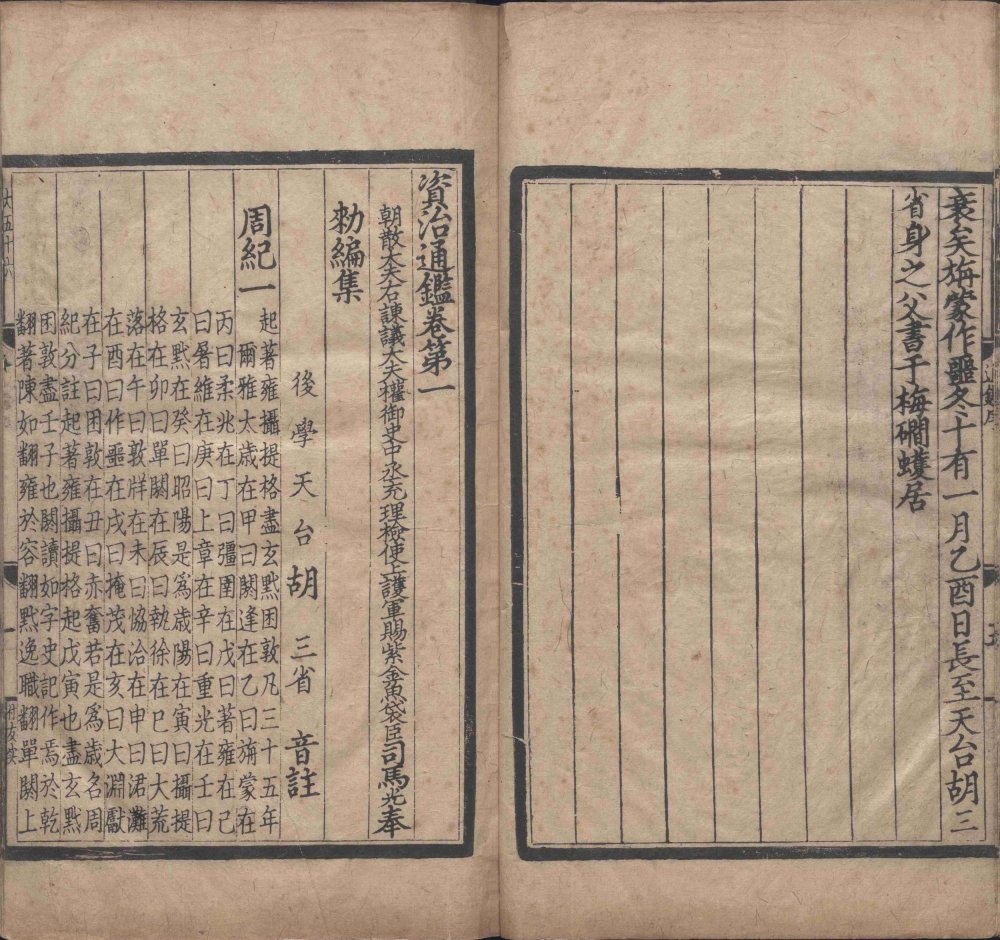 衰矣旃蒙作噩冬十有一月乙酉日長至天台胡三
省身之父書于梅磵蠖居
資治通鑑卷第一
朝散大夫右諫議大夫權御史中丞充理檢使上護軍賜紫金魚袋臣司馬光奉
勑編集
後學天台胡三省音註
周紀一
起著雍攝提格盡玄黓困敦凡三十五年
爾雅太歳在甲曰閼逢在乙曰旃蒙在
丙曰柔兆在丁曰彊圉在戊曰著雍在己
曰屠維在庚曰上章在辛曰重光在壬曰
玄黓在癸曰昭陽是爲歳陽在寅曰攝提
格在卯曰單閼在辰曰執徐在巳曰大荒
落在午曰敦牂在未曰協洽在申曰涒灘
在酉曰作噩在戌曰掩茂在亥曰大淵獻
在子曰困敦在丑曰赤奮若是爲歳名周
紀分註起著雍攝提格起戊寅也盡玄黓
困敦盡壬子也閼讀如字史記作焉於乾
翻著陳如翻雍於容翻黓逸職翻單閼上